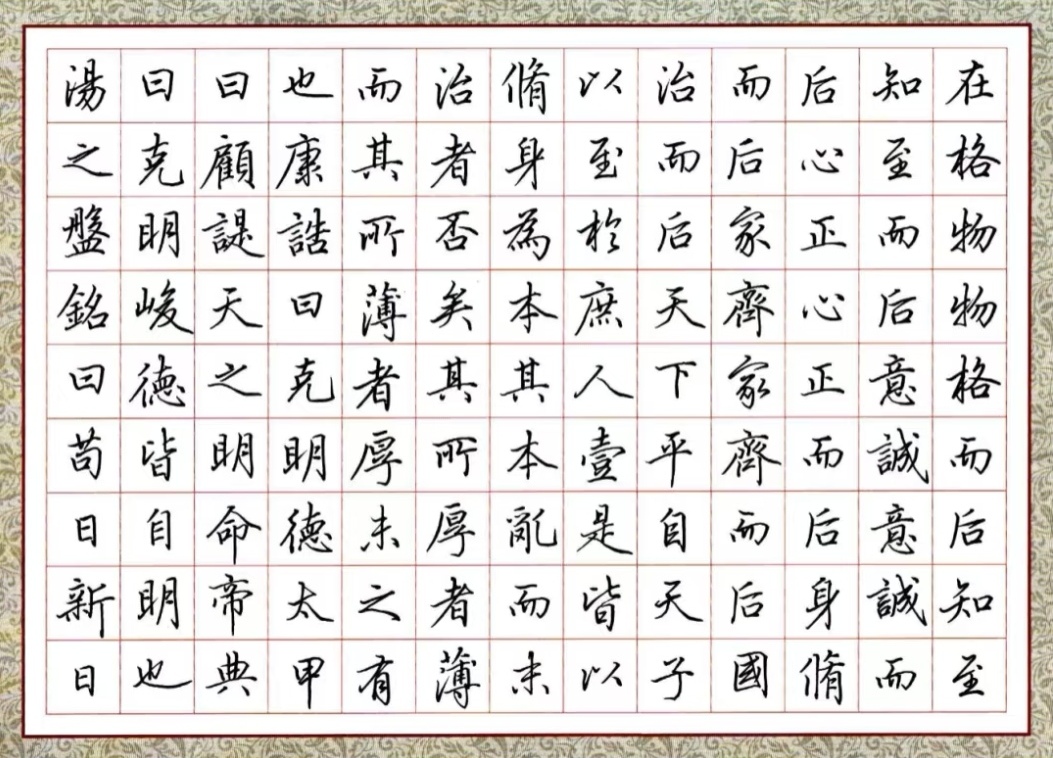 在格物物格而后知至
知至而后意誠意誠而
后心正心正而后身脩
而后家齊家齊而后國
治而后天下平自天子
以至於庶人壹是皆以
脩身為本其本亂而末
治者否矣其所厚者薄
而其所薄者厚未之有
也康誥曰克明德太甲
曰顧諟天之明命帝典
曰克明峻德皆自明也
湯之盤銘曰苟日新日